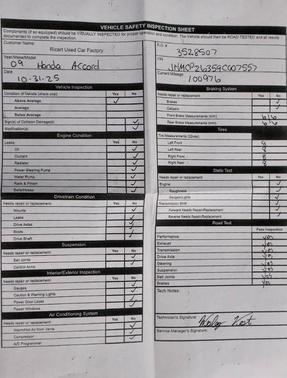 VEHICLE SAFETY INSPECTION SHEET
Components (if so equipped) should be VISUALLY INSPECTED for proper operation and condition. The vehicle should then be ROAD TESTED and all results documented to complete the inspection.
Customer Name:
Ricart Used Car Factory
Year/Make/Model
09 Honda Accord
Date
10-31-25
R.O. #
3528507
VIN
Current Mileage:
100976
Vehicle Inspection
Condition of Vehicle (check one) Yes No
Above Average
Average
Below Average
Sign(s) of Collision Damage(s)
Modification(s)
Engine Condition
Leaks Yes No
Oil
Coolant
Radiator
Power Steering Pump
Water Pump
Rack & Pinion
Belts/Hoses
Drivetrain Condition
Needs repair or replacement: Yes No
Mounts
Leaks
Drive Axles
Boots
Drive Shaft
Suspension
Needs repair or replacement: Yes No
Ball Joints
Control Arms
Interior/Exterior Inspection
Needs repair or replacement: Yes No
Gauges
Caution & Warning Lights
Power Door Locks
Power Windows
Air Conditioning System
Needs repair or replacement: Yes No
Warm/Hot Air from Vents
Compressor
A/C Programmer
Braking System
Needs repair or replacement: Yes No
Brakes
Calipers
Front Brake Measurements (MM)
Rear Brake Measurements (MM)
Tires
Tire Measurements (32nds)
Left Front
Left Rear
Right Front
Right Rear
Static Test
Needs repair or replacement: Yes No
Engine
Roughness
Transmission Shift
Forward Needs Repair/Replacement
Reverse Needs Repair/Replacement
Road Test
Pass Inspection
Performance yes
Exhaust yes
Transmission yes
Drive Axle yes
Steering yes
Suspension yes
Ball Joints yes
Brakes yes
Tech Notes:
Technician's Signature:
Service Manager's Signature: